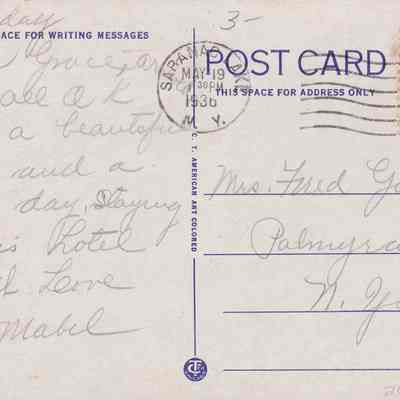 3-
day
ACE FOR WRITING MESSAGES
Grace,
all O.K.
a beautiful
and a
day, Staying
is hotel
Love
Mabel
SARANAC LAKE
MAY 19
30 PM
1936
N. Y.
POST CARD
THIS SPACE FOR ADDRESS ONLY
C. T. AMERICAN ART COLORED
Mrs. Fred Go
Palmyra
N. Y.